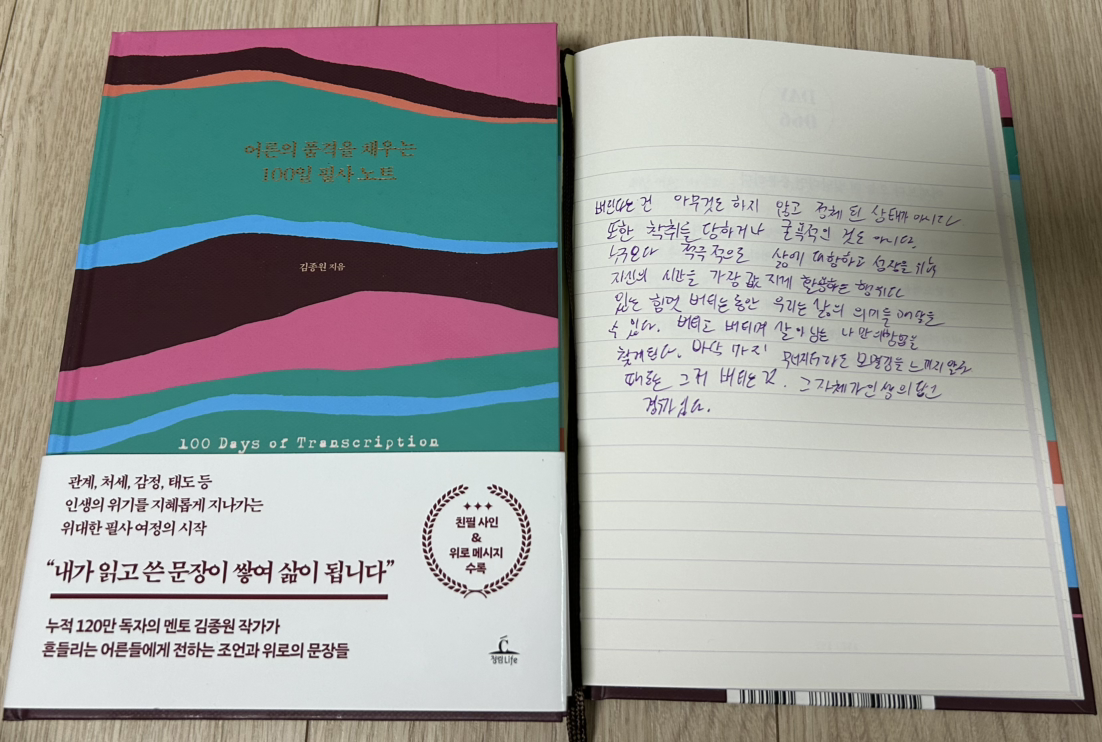 어른의 품격을 채우는
100일 필사 노트
김종원 지음
100 Days of Transcription
관계, 처세, 감정, 태도 등
인생의 위기를 지혜롭게 지나가는
위대한 필사 여정의 시작
“내가 읽고 쓴 문장이 쌓여 삶이 됩니다”
누적 120만 독자의 멘토 김종원 작가가
흔들리는 어른들에게 전하는 조언과 위로의 문장들
친필 사인
&
위로 메시지
수록
청림Life
DAY
066
버틴다는 건 아무것도 하지 않고 정체 된 상태가 아니다
또한 착취를 당하거나 굴욕적인 것도 아니다.
누구보다 적극적으로 삶에 대항하고 성장을 위해
자신의 시간을 가장 값지게 활용하는 행위다
있는 힘껏 버티는 동안 우리는 삶의 의미를
수 있다. 버티고 버티며 살아남는 나만의 방법을
찾게된다. 바닥 까지 무너지더라도 모멸감을 느끼지 않고
때로는 그저 버티는 것. 그 자체가 인생의 답이고